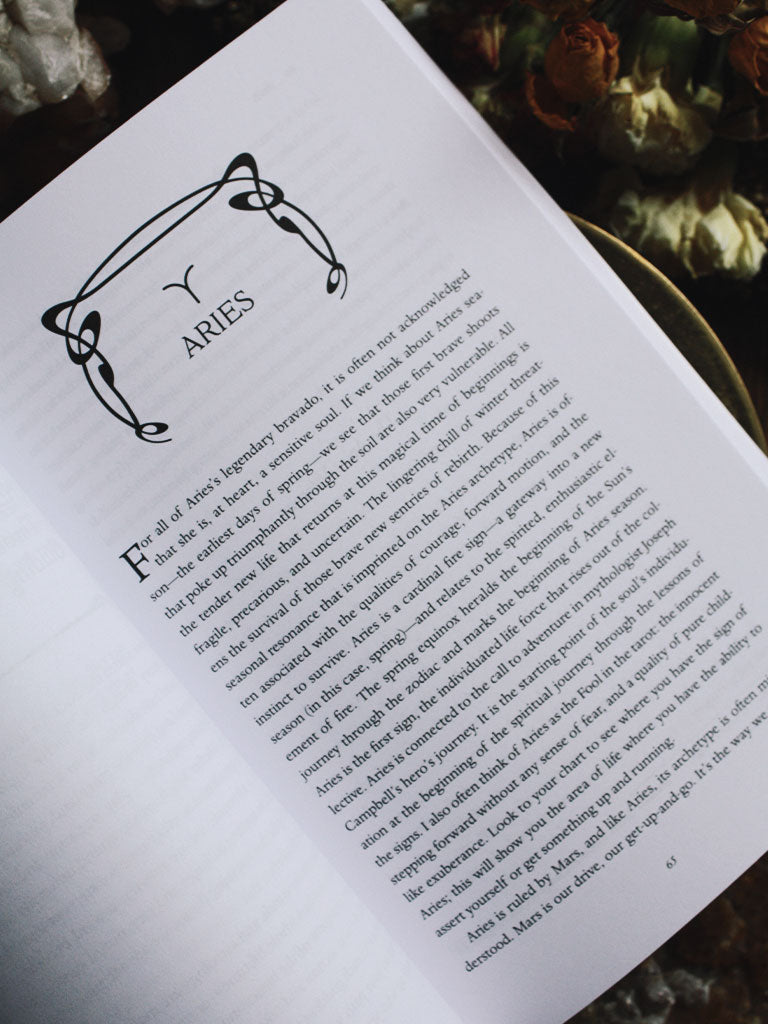 ♈
ARIES
For all of Aries's legendary bravado, it is often not acknowledged
that she is, at heart, a sensitive soul. If we think about Aries sea-
son—the earliest days of spring—we see that those first brave shoots
that poke up triumphantly through the soil are also very vulnerable. All
the tender new life that returns at this magical time of beginnings is
fragile, precarious, and uncertain. The lingering chill of winter threat-
ens the survival of those brave new sentries of rebirth. Because of this
seasonal resonance that is imprinted on the Aries archetype, Aries is of-
ten associated with the qualities of courage, forward motion, and the
instinct to survive. Aries is a cardinal fire sign—a gateway into a new
season (in this case, spring)—and relates to the spirited, enthusiastic el-
ement of fire. The spring equinox heralds the beginning of the Sun's
journey through the zodiac and marks the beginning of Aries season.
Aries is the first sign, the individuated life force that rises out of the col
lective. Aries is connected to the call to adventure in mythologist Joseph
Campbell's hero's journey. It is the starting point of the soul's individu-
ation at the beginning of the spiritual journey through the lessons of
the signs. I also often think of Aries as the Fool in the tarot: the innocent
stepping forward without any sense of fear, and a quality of pure child-
like exuberance. Look to your chart to see where you have the sign of
Aries; this will show you the area of life where you have the ability to
assert yourself or get something up and running.
Aries is ruled by Mars, and like Aries, its archetype is often mi
derstood. Mars is our drive, our get-up-and-go. It's the way we
65